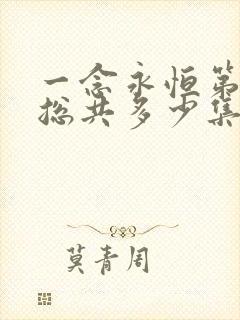 一念永恒第
总共多少集
莫青周